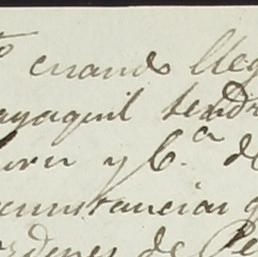 cuando lleg
ayaquil tendr
y C.ª de
cunstancias q
ordenes de Pe